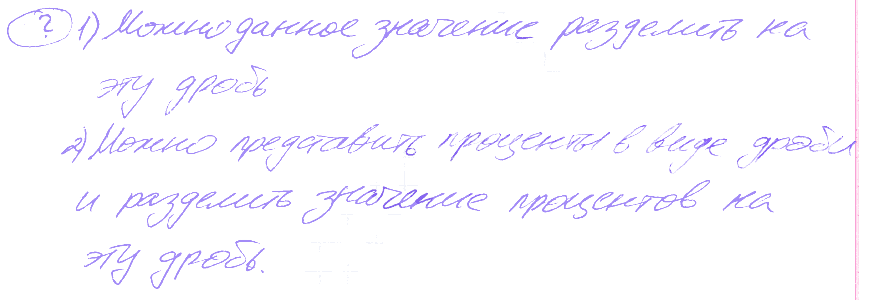 ? 1) Можно данное значение разделить на
эту дробь
2) Можно представить проценты в виде дроби
и разделить значение процентов на
эту дробь.